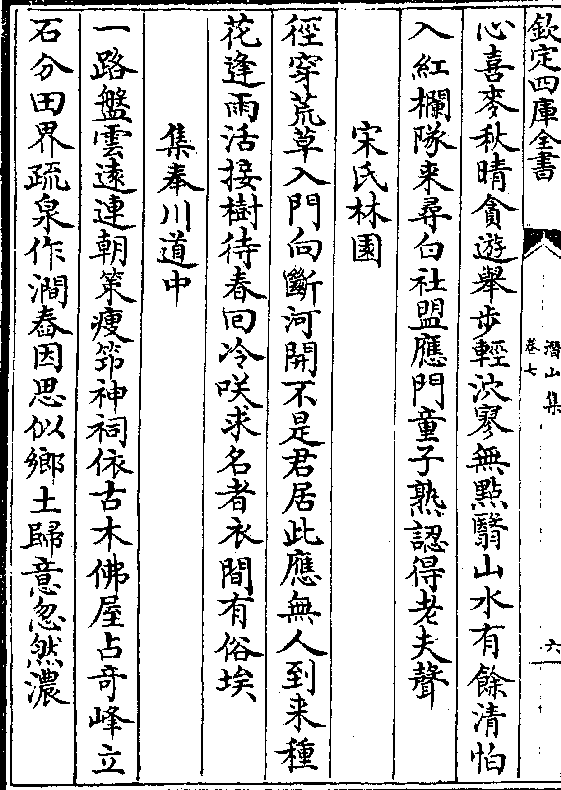 欽定四庫全書
潛山集
卷七
六
心喜麥秋晴貪遊舉步輕泬寥無點翳山水有餘清怕
入紅欄隊来尋白社盟應門童子熟認得老夫聲
宋氏林園
徑穿荒草入門向斷河開不是君居此應無人到来種
花逢雨活接樹待春回冷咲求名者衣間有俗埃
集奉川道中
一路盤雲遠連朝策瘦筇神祠依古木佛屋占奇峰立
石分田界疏泉作澗舂因思似鄉土歸意忽然濃